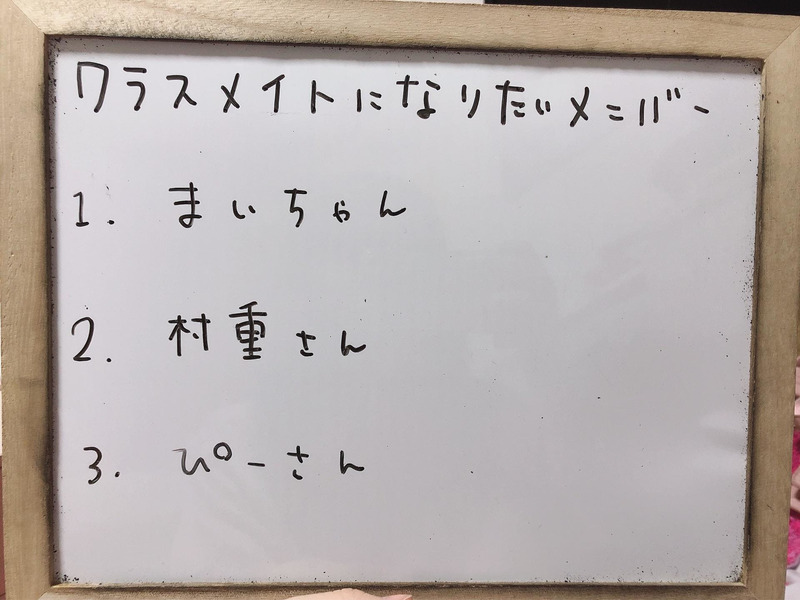 クラスメイトになりたいメンバー
1. まいちゃん
2. 村重さん
3. ぴーさん